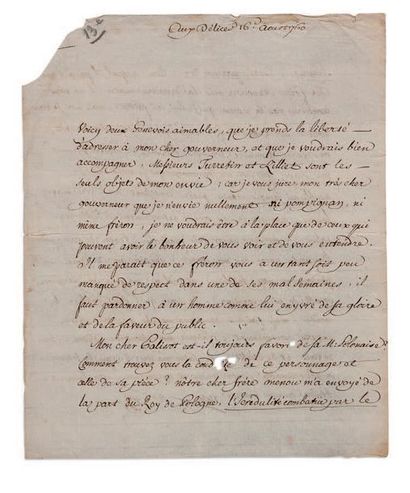 13e
Aux Délices 16e Aoust 1760
Voicy deux Genevois aimables, que je prends la liberté
d'adresser à mon cher gouverneur, et que je voudrais bien
accompagner, Messieurs Turretin et Lilliet sont les
seuls objets de mon envie; car je vous jure mon très cher
gouverneur que je n'envie nullement ni pompignan, ni
même fréron, je ne voudrais être à la place que de ceux qui
peuvent avoir le bonheur de vous voir et de vous entendre.
Il me parait que ce fréron vous a un tant soit peu
manqué de respect dans une de ses mal semaines, il
faut pardonner à un homme comme lui enyvré de sa gloire
et de la faveur du public.
Mon cher Palissot est-il toujours favori de sa M. Polonaise?
Comment trouvez vous la conduite de ce personnage et
celle de sa pièce? nôtre cher frère menou m'a envoyé de
la part du Roy de Pologne, l'Incrédulité combatue par le